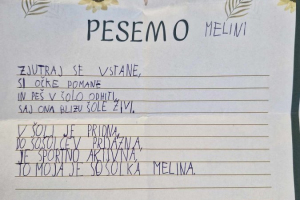 PESEMO MELINI
ZJUTRAJ SE VSTANE,
SI OČKE POMANE
IN PEŠ V ŠOLO ODHITI,
SAJ ONA BLIZU ŠOLE ŽIVI.
V ŠOLI JE PRIDNA,
DO SOŠOLCEV PRIJAZNA,
JE ŠPORTNO AKTIVNA,
TO MOJA JE SOŠOLKA MELINA.